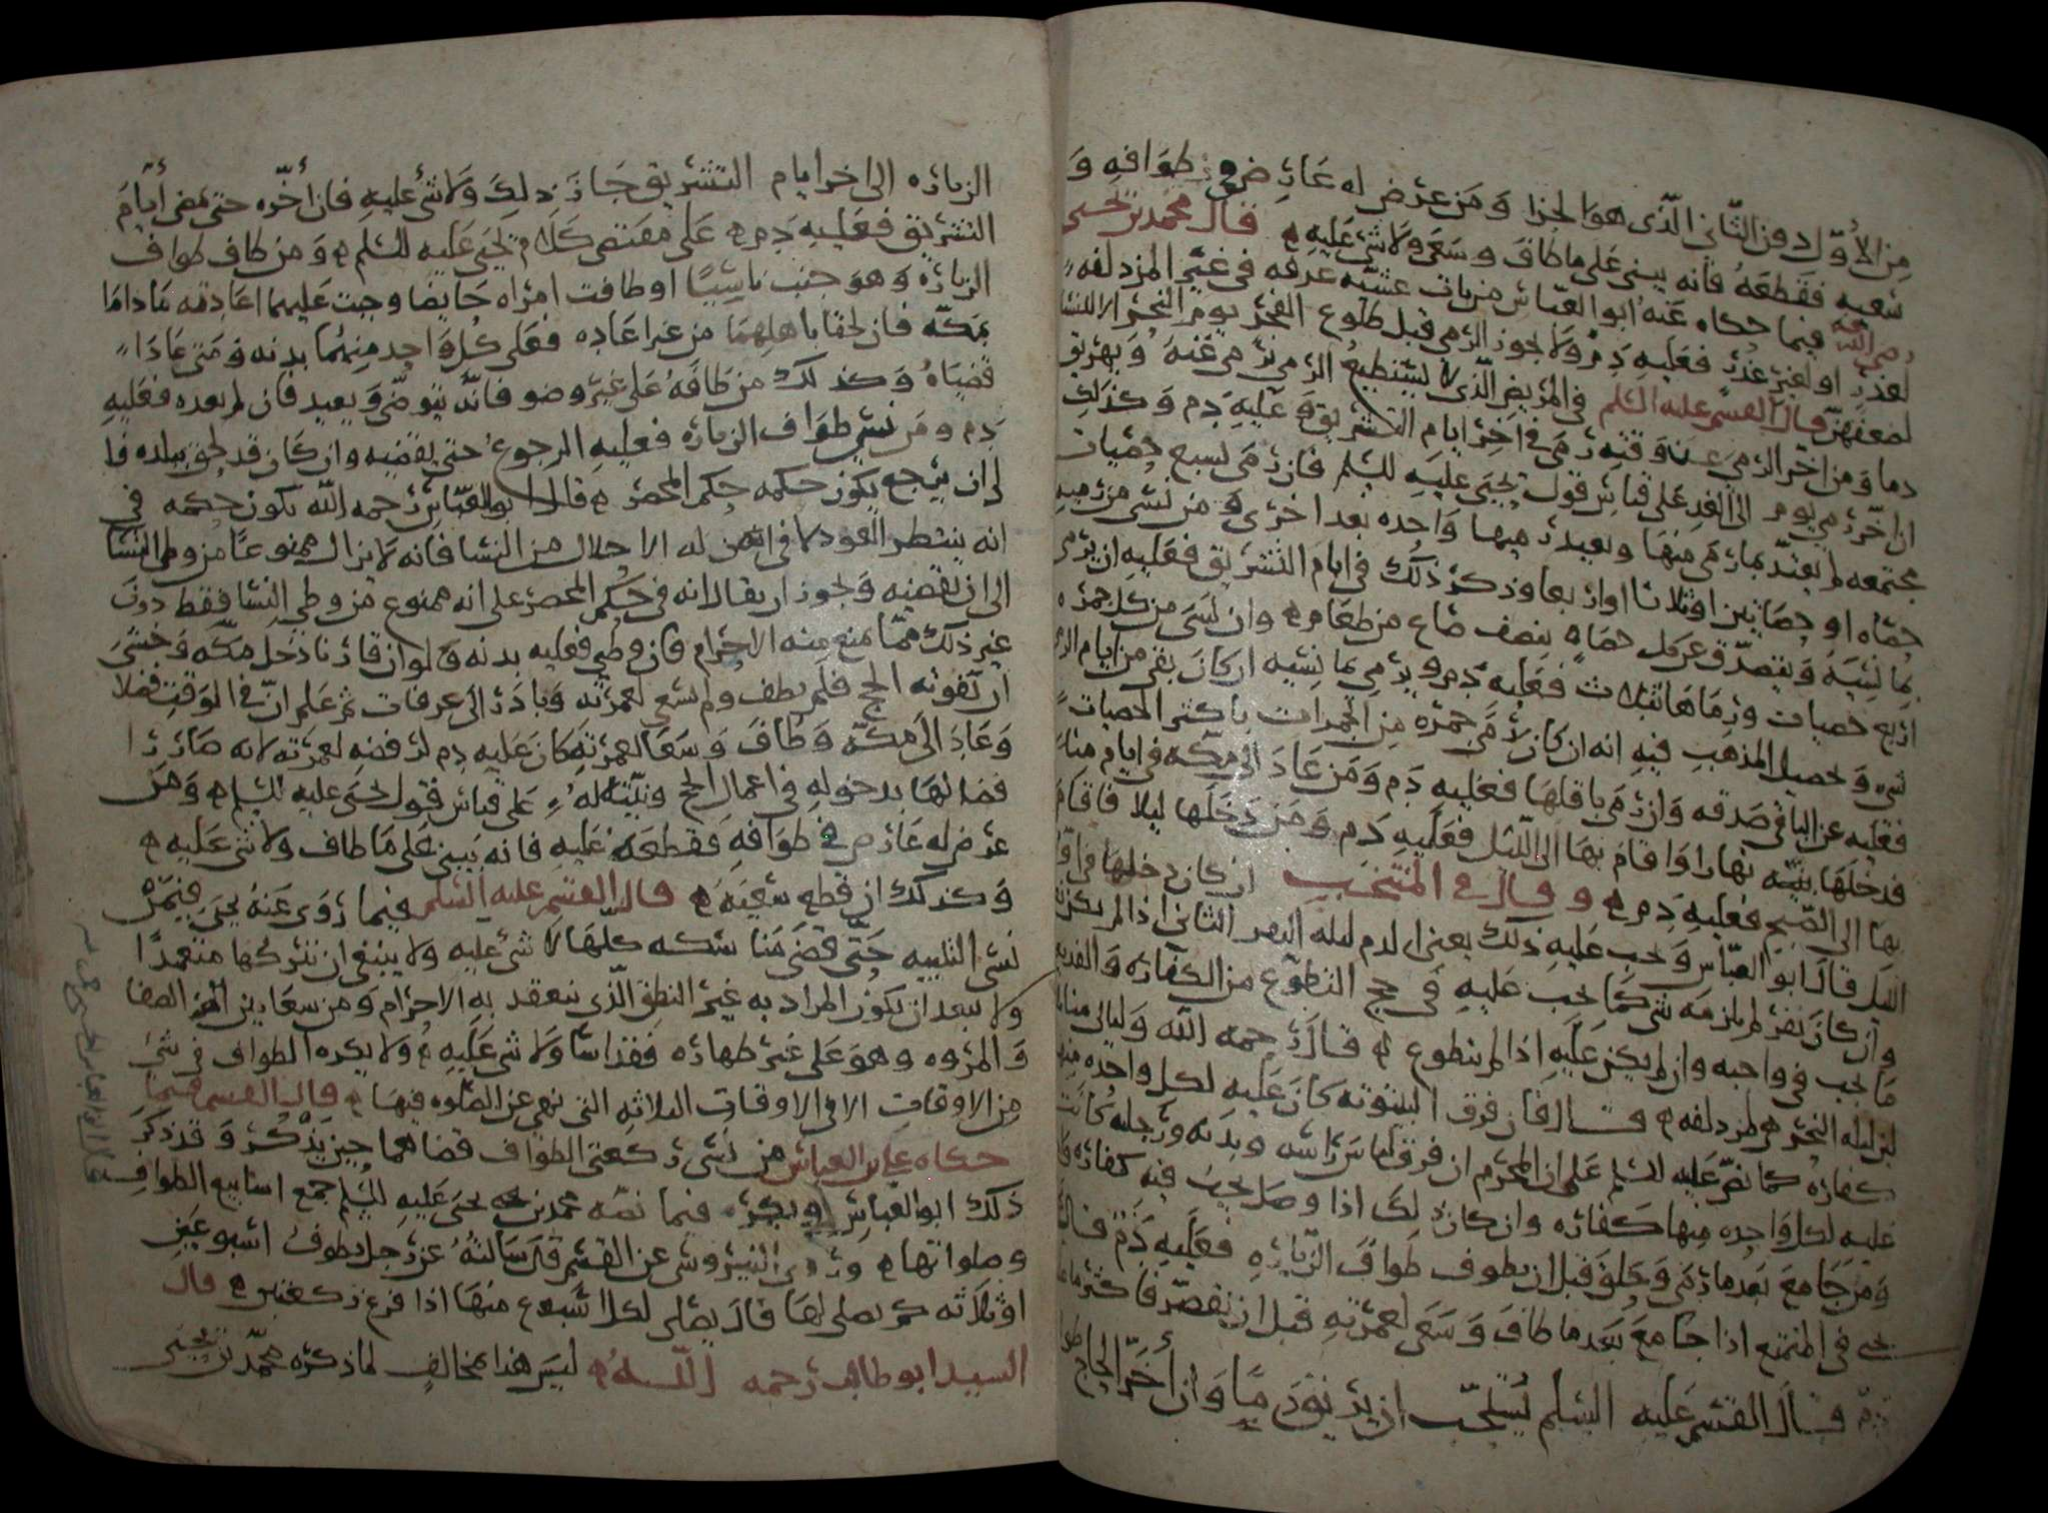 من الأول دون الثاني الذي هو الجزا ومن عرض له عارض في طوافه و
سعيه فقطعه فانه يبني على ما طاف وسعى ولا شي عليه قال محمد بن يحيى
رضي الله عنه فيما حكاه عنه ابو العباس من بات عشية عرفه في غير المزدلفه
لعذر او لغير عذر فعليه دم ولا يجوز الرمي قبل طلوع الفجر يوم النحر الا للنسا
لضعفهن قال القسم عليه السلم في المريض الذي لا يستطيع الرمي يرمى عنه ويهريق
دما ومن اخر الرمي عن وقته رمى في اخر ايام التشريق وعليه دم وكذلك
ان اخر رمي يوم الى الغد على قياس قول يحيى عليه السلم فان رمى بسبع حصيات
مجتمعه لم يعتد بما رمى منها ويعيد رميها واحده بعد اخرى ومن نسي من رميه
حصاه او حصاتين او ثلاثا او اربعا وذكر ذلك في ايام التشريق فعليه ان يرمي
بما نسيه ويتصدق عن كل حصاه بنصف صاع من طعام وان نسي من كل جمره
اربع حصيات ورماها بثلاث فعليه دم ويرمي بما نسيه ان كان بقي من ايام الرمي
شي وتحصيل المذهب فيه انه ان كان رمى جمره من الجمرات باكثر الحصيات
فعليه عن الباقي صدقه وان رمى باقلها فعليه دم ومن عاد الى مكه في ايام منا
فدخلها بنيه نهارا واقام بها الى الليل فعليه دم ومن دخلها ليلا فاقام
بها الى الصبح فعليه دم وقال في المنتخب ان كان دخلها في اول
الليل قال ابو العباس وتجب عليه ذلك يعني الدم ليله النفر الثاني اذا لم يكن
وان كان نفر لم يلزمه شي كما تجب عليه في حج التطوع من الكفاره والفديه
ما تجب في واجبه وان لم يكن عليه اذا لم يتطوع قال رحمه الله وليالي منا
ليله النحر بمزدلفه قال فان فرق البيتوته كان عليه لكل واحده منها
كفاره كما نص عليه السلم على ان المحرم ان فرق لباس راسه وبدنه ورجليه كانت
عليه لكل واحده منها كفاره وان كان ذلك اذا وصل تجب فيه كفاره
ومن جامع بعد ما رمى وحلق قبل ان يطوف طواف الزياره فعليه دم قال
يحيى في المتمتع اذا جامع بعد ما طاف وسعى لعمرته قبل ان يقصر فاكثر ما
قال القسم عليه السلم يستحب ان يريق دما وان أخر الحاج طواف
الزياره الى اخر ايام التشريق جاز ذلك ولا شي عليه فان أخره حتى تمضي أيام
التشريق فعليه دم على مقتضى كلام يحيى عليه السلم ومن طاف طواف
الزياره وهو جنب ناسيا او طافت امراه حايضا وجبت عليهما اعادته ما داما
بمكه فان لحقا باهلهما من غير اعاده فعلى كل واحد منهما بدنه ومتى عادا
قضياه وكذلك من طافه على غير وضو فانه يتوضى ويعيد فان لم يعده فعليه
دم ومن نسي طواف الزياره فعليه الرجوع حتى يقضيه وان كان قد لحق ببلده فا
لى ان يرجع يكون حكمه حكم المحصر قال ابو العباس رحمه الله يكون حكمه في
انه ينتظر العود لا في انه من له الاحلال من النسا فانه لا يزال ممنوعا من وطي النسا
الى ان يقضيه ويجوز ان يقال انه في حكم المحصر على انه ممنوع من وطي النسا فقط دون
غير ذلك مما منع منه الاحرام فان وطي فعليه بدنه ولو ان قارنا دخل مكه وخشي
ان يفوته الحج فلم يطف ولم يسعى لعمرته وبادر الى عرفات ثم علم ان في الوقت فضلا
وعاد الى مكه وطاف وسعا لعمرته كان عليه دم لرفضه لعمرته لانه صار را
فضا لها بدخوله في اعمال الحج ونيته له على قياس قول يحيى عليه السلم ومن
عرض له عارض في طوافه فقطعه عليه فانه يبني على ما طاف ولا شي عليه
وكذلك ان قطع سعيه قال القسم عليه السلم فيما روى عنه يحيى فيمن
نسي التلبيه حتى قضى مناسكه كلها لا شي عليه ولا ينبغي ان يتركها متعمدا
ولا يبعد ان يكون المراد به غير النطق الذي ينعقد به الاحرام ومن سعا بين الصفا
والمروه وهو على غير طهاره فقد اسا ولا شي عليه ولا يكره الطواف في شي
من الاوقات الا في الاوقات الثلاثه التي نهي عن الصلوه فيها قال القسم فيما
حكاه علي ابن العباس من نسي ركعتي الطواف قضاهما حين يذكر وقد ذكر
ذلك ابو العباس ويكره فيما نصه محمد بن يحيى عليه السلم جمع اسابيع الطواف
وصلواتها وروى النيروسي عن القسم قال سالته عن رجل يطوف اسبوعين
او ثلاثه كم يصلي لها قال يصلي لكل اسبوع منها اذا فرغ ركعتين قال
السيد ابو طالب رحمه الله ليس هذا بمخالف لما ذكره محمد بن يحيى